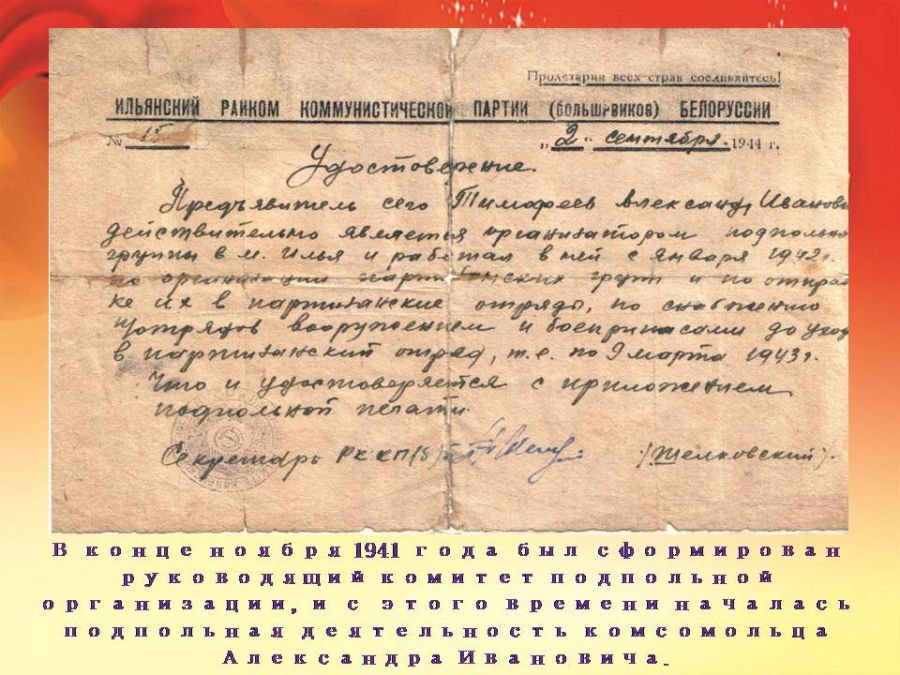 Пролетарии всех стран соединяйтесь!
ИЛЬЯНСКИЙ РАЙКОМ КОММУНИСТИЧЕСКОЙ ПАРТИИ (большевиков) БЕЛОРУССИИ
№ 15 „2" сентября 1944 г.
Удостоверение.
Предъявитель сего Тимофеев Александр Иванови
действительно является организатором подпольно
группы в м. Илья и работал в ней с января 1942 г.
по организации партизанских групп и по отправ
ке их в партизанские отряды, по снабжению
отрядов вооружением и боеприпасами до ухода
в партизанский отряд, т.е. по 9 марта 1943 г.
Что и удостоверяется с приложением
подпольной печати.
Секретарь РК КП(б)Б /Щелковский/.
В конце ноября 1941 года был сформирован
руководящий комитет подпольной
организации, и с этого времени началась
подпольная деятельность комсомольца
Александра Ивановича.